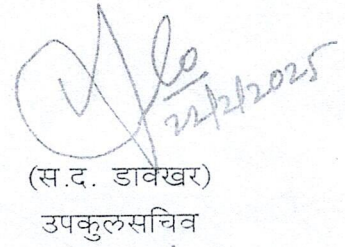 22/2/2025
(स.द. डावखर)
उपकुलसचिव